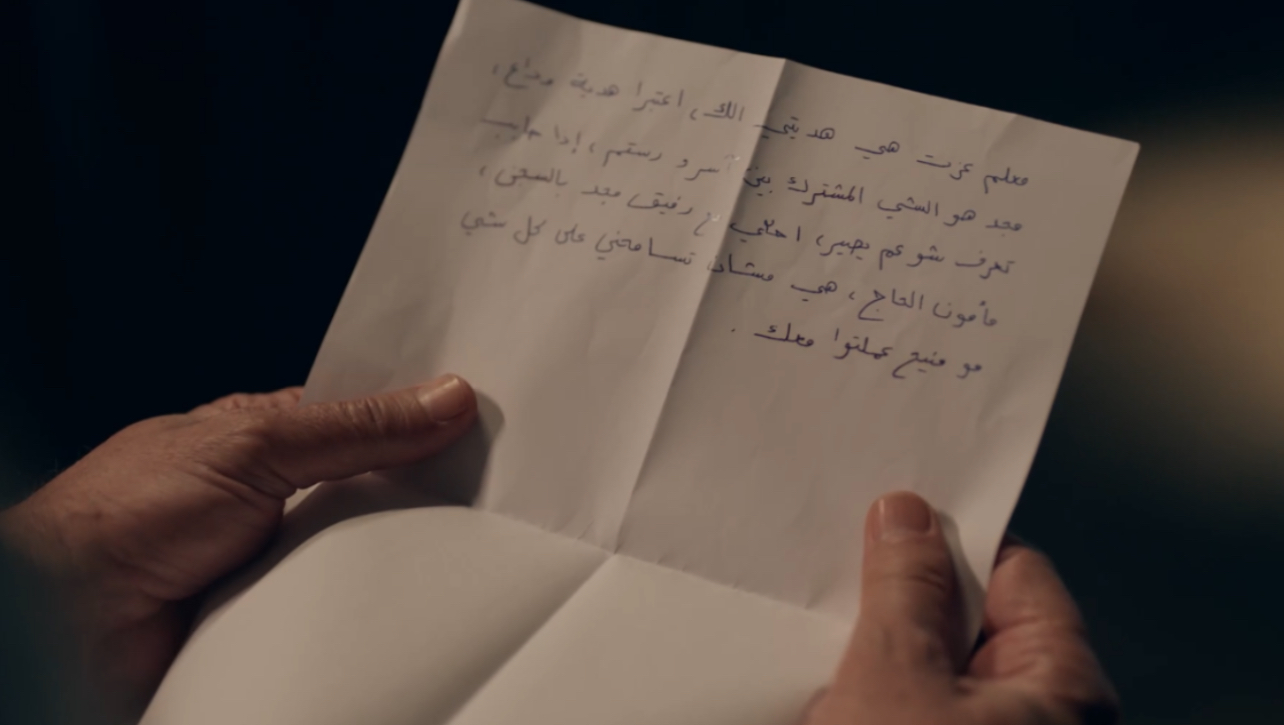 معلم عزت هي هديتي الك، اعتبرا هدية وداع،
مجد هو الشي المشترك بين آسر و رستم، إذا حابب
تعرف شو عم يصير، احكي مع رفيق مجد بالسجن،
مأمون الحاج، هي مشان تسامحني على كل شي
مو منيح عملتوا معك.